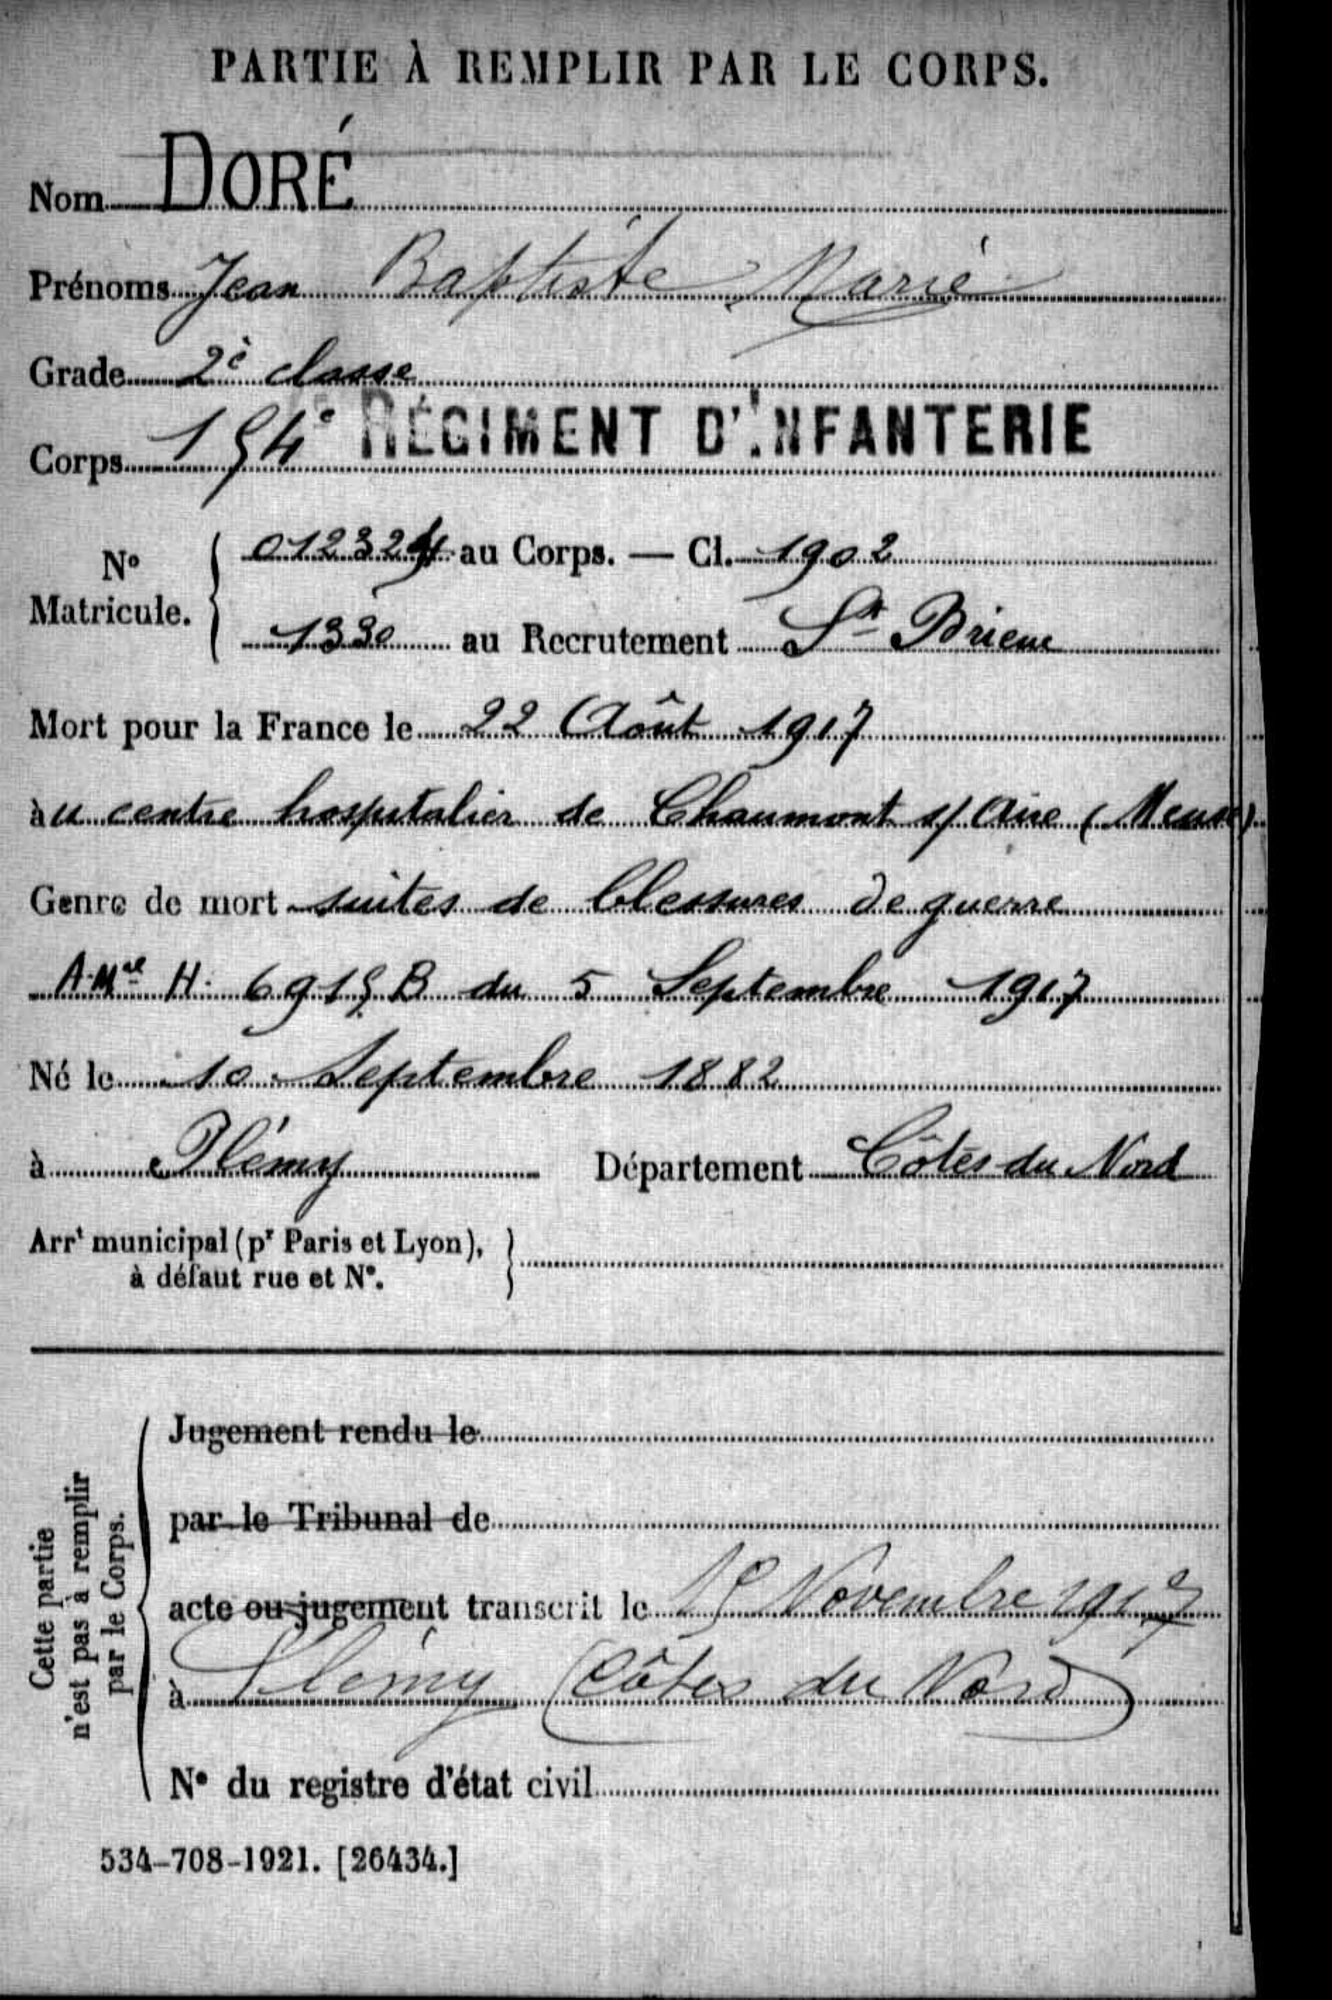 PARTIE À REMPLIR PAR LE CORPS.
Nom DORÉ
Prénoms Jean Baptiste Marie
Grade 2è classe
Corps 154e RÉGIMENT D'INFANTERIE
No Matricule. 
au Corps. — Cl. 1902
1330 au Recrutement St Brieuc
Mort pour la France le 22 Août 1917
à u centre hospitalier de Chaumont s/ Aire (Meuse)
Genre de mort suites de blessures de guerre
A-Mel H. 6915 B du 5 Septembre 1917
Né le 10 Septembre 1882
à Plémy Département Côtes du Nord
Arrt municipal (pr Paris et Lyon),
à défaut rue et No.
Cette partie
n'est pas à remplir
par le Corps.
Jugement rendu le
par le Tribunal de
acte ou jugement transcrit le 15 Novembre 1917
à Plémy (Côtes du Nord)
No du registre d'état civil
534-708-1921. [26434.]